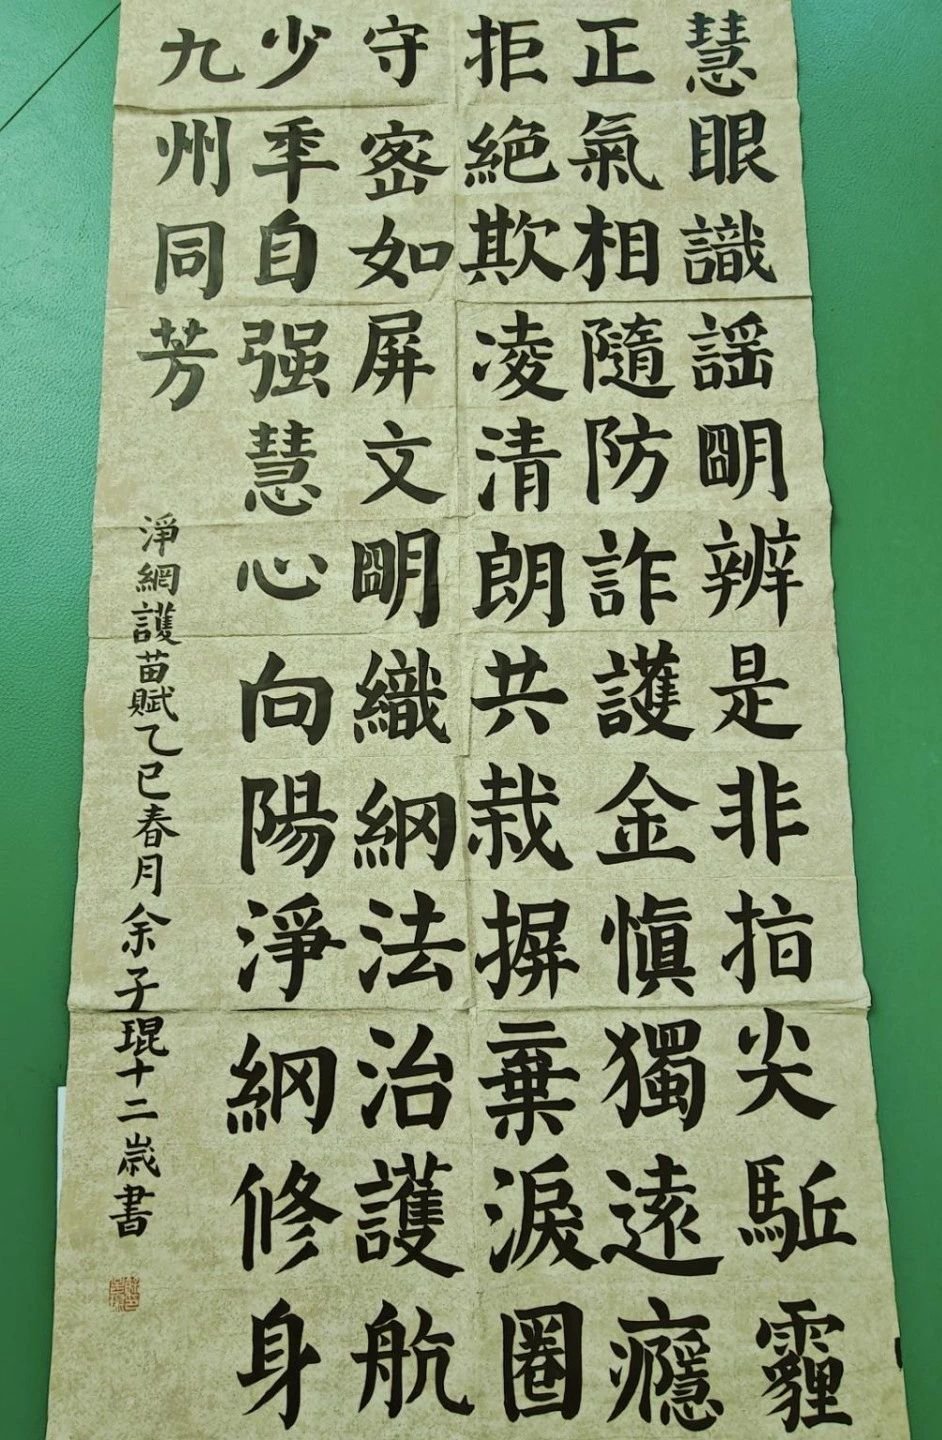 慧眼識謡朙辨是非指尖駈霾
正氣相隨防詐護金慎獨遠癮
拒絶欺凌清朗共栽摒棄淚圈
守密如屏文朙織䋄法治護航
少秊自强慧心向陽淨䋄修身
九州同芳
淨網護苗賦乙巳春月余子琨十二歲書